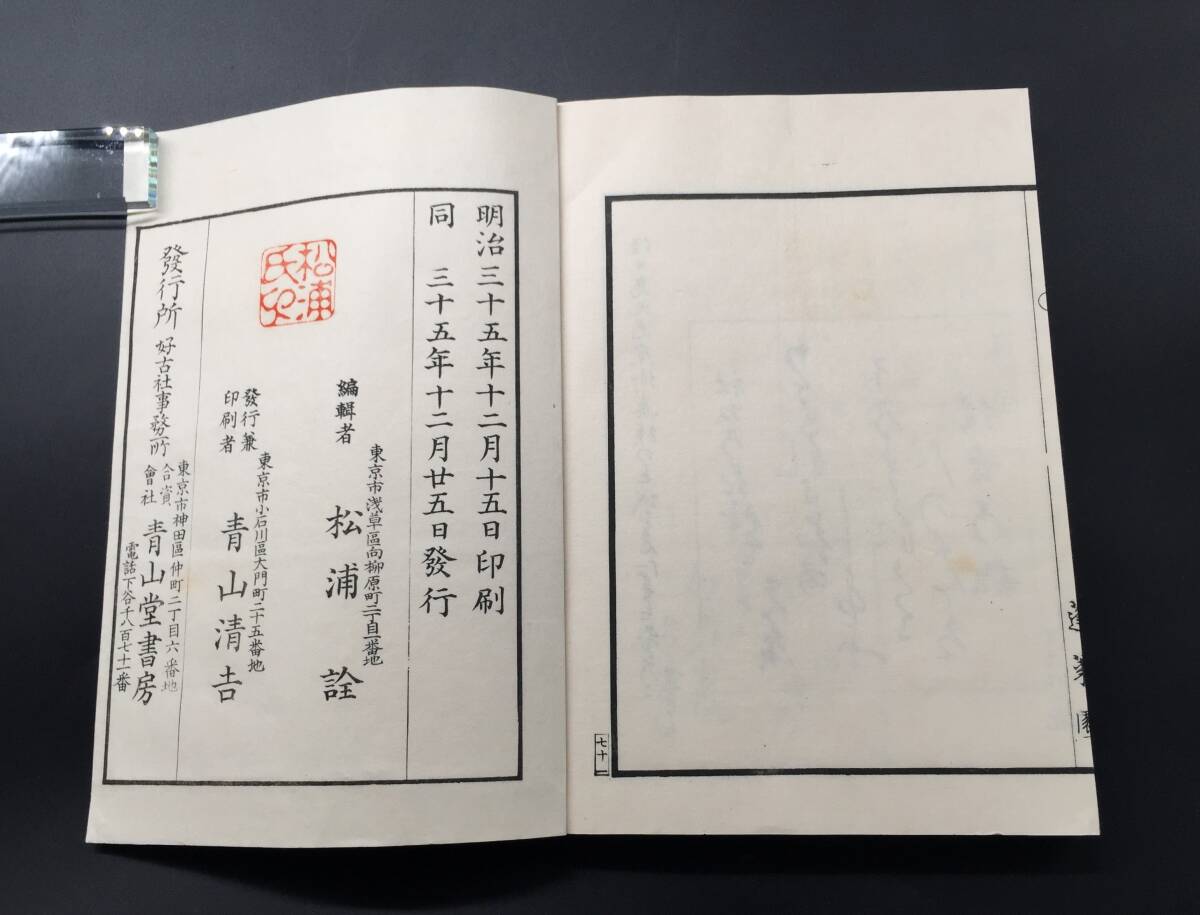 蓬萊園
七十一
明治三十五年十二月十五日印刷
同 三十五年十二月廿五日發行
編輯者
東京市浅草區向柳原町二丁目一番地
松浦詮
松浦
氏
發行兼
印刷者
東京市小石川區大門町二十五番地
青山清吉
發行所
好古社事務所
東京市神田區仲町二丁目六番地
合資
會社
青山堂書房
電話下谷千八百七十一番